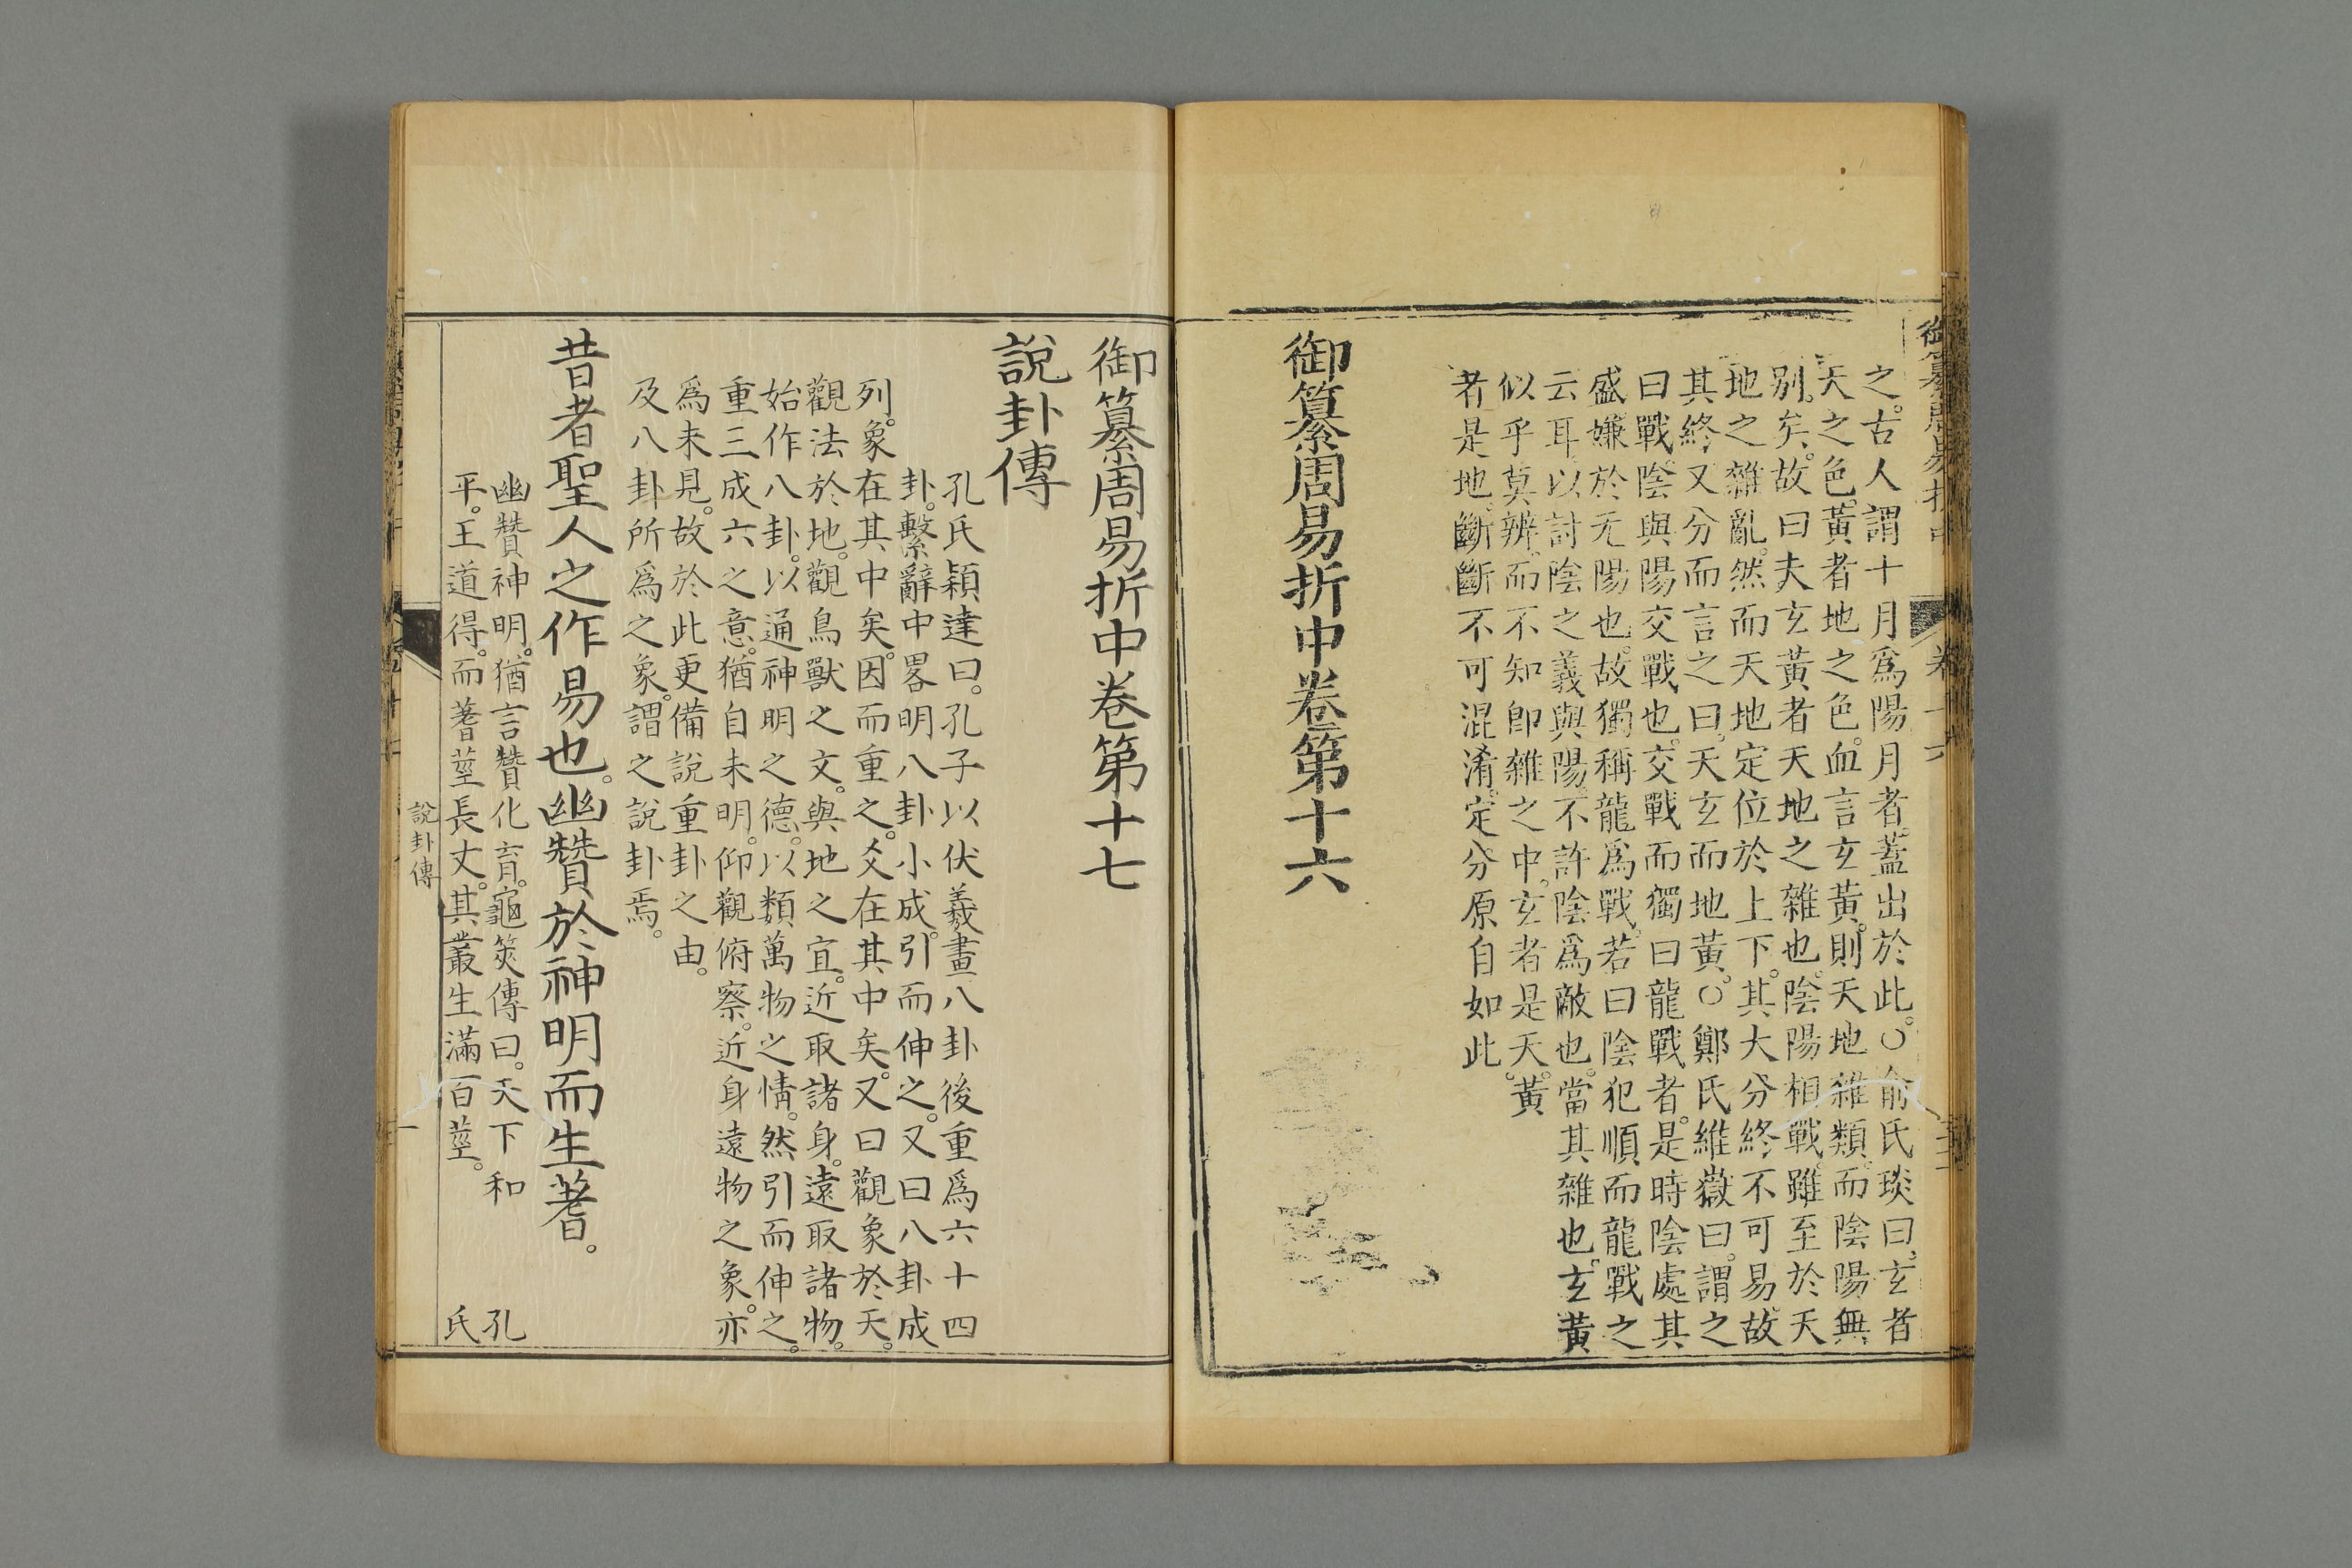 之。古人謂十月爲陽月者。蓋出於此。○俞氏琰曰。玄者
天之色。黃者地之色。血言玄黃。則天地雜類。而陰陽無
別矣。故曰夫玄黃者天地之雜也。陰陽相戰。雖至於天
地之雜亂。然而天地定位於上下。其大分終不可易。故
其終又分而言之曰。天玄而地黃。○鄭氏維嶽曰。謂之
曰戰。陰與陽交戰也。交戰而獨曰龍戰者。是時陰處其
盛。嫌於无陽也。故獨稱龍爲戰。若曰陰犯順而龍戰之
云耳。以討陰之義與陽。不許陰爲敵也。當其雜也。玄黃
似乎莫辨。而不知卽雜之中。玄者是天。黃
者是地。斷斷不可混淆。定分原自如此。
御纂周易折中卷第十六
御纂周易折中卷第十七
說卦傳
孔氏穎達曰。孔子以伏羲畫八卦後重爲六十四
卦。繫辭中畧明八卦小成。引而伸之。又曰八卦成
列。象在其中矣。因而重之。爻在其中矣。又曰觀象於天。
觀法於地。觀鳥獸之文。與地之宜。近取諸身。遠取諸物。
始作八卦。以通神明之德。以類萬物之情。然引而伸之。
重三成六之意。猶自未明。仰觀俯察。近身遠物之象。亦
爲未見。故於此更備說重卦之由。
及八卦所爲之象。謂之說卦焉。
昔者聖人之作易也。幽贊於神明而生蓍。
幽贊神明。猶言贊化育。龜筴傳曰。天下和
平。王道得。而蓍莖長丈。其叢生滿百莖。
孔
氏
說卦傳
一